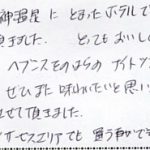 神温泉に とまったホテルで
頂きました。 とってもおいし
ヘブンスそのはらの ナイトツ
ぜひまた 味わいたいと思い
せて頂きました。
サービスエリアでも 買う事ができ